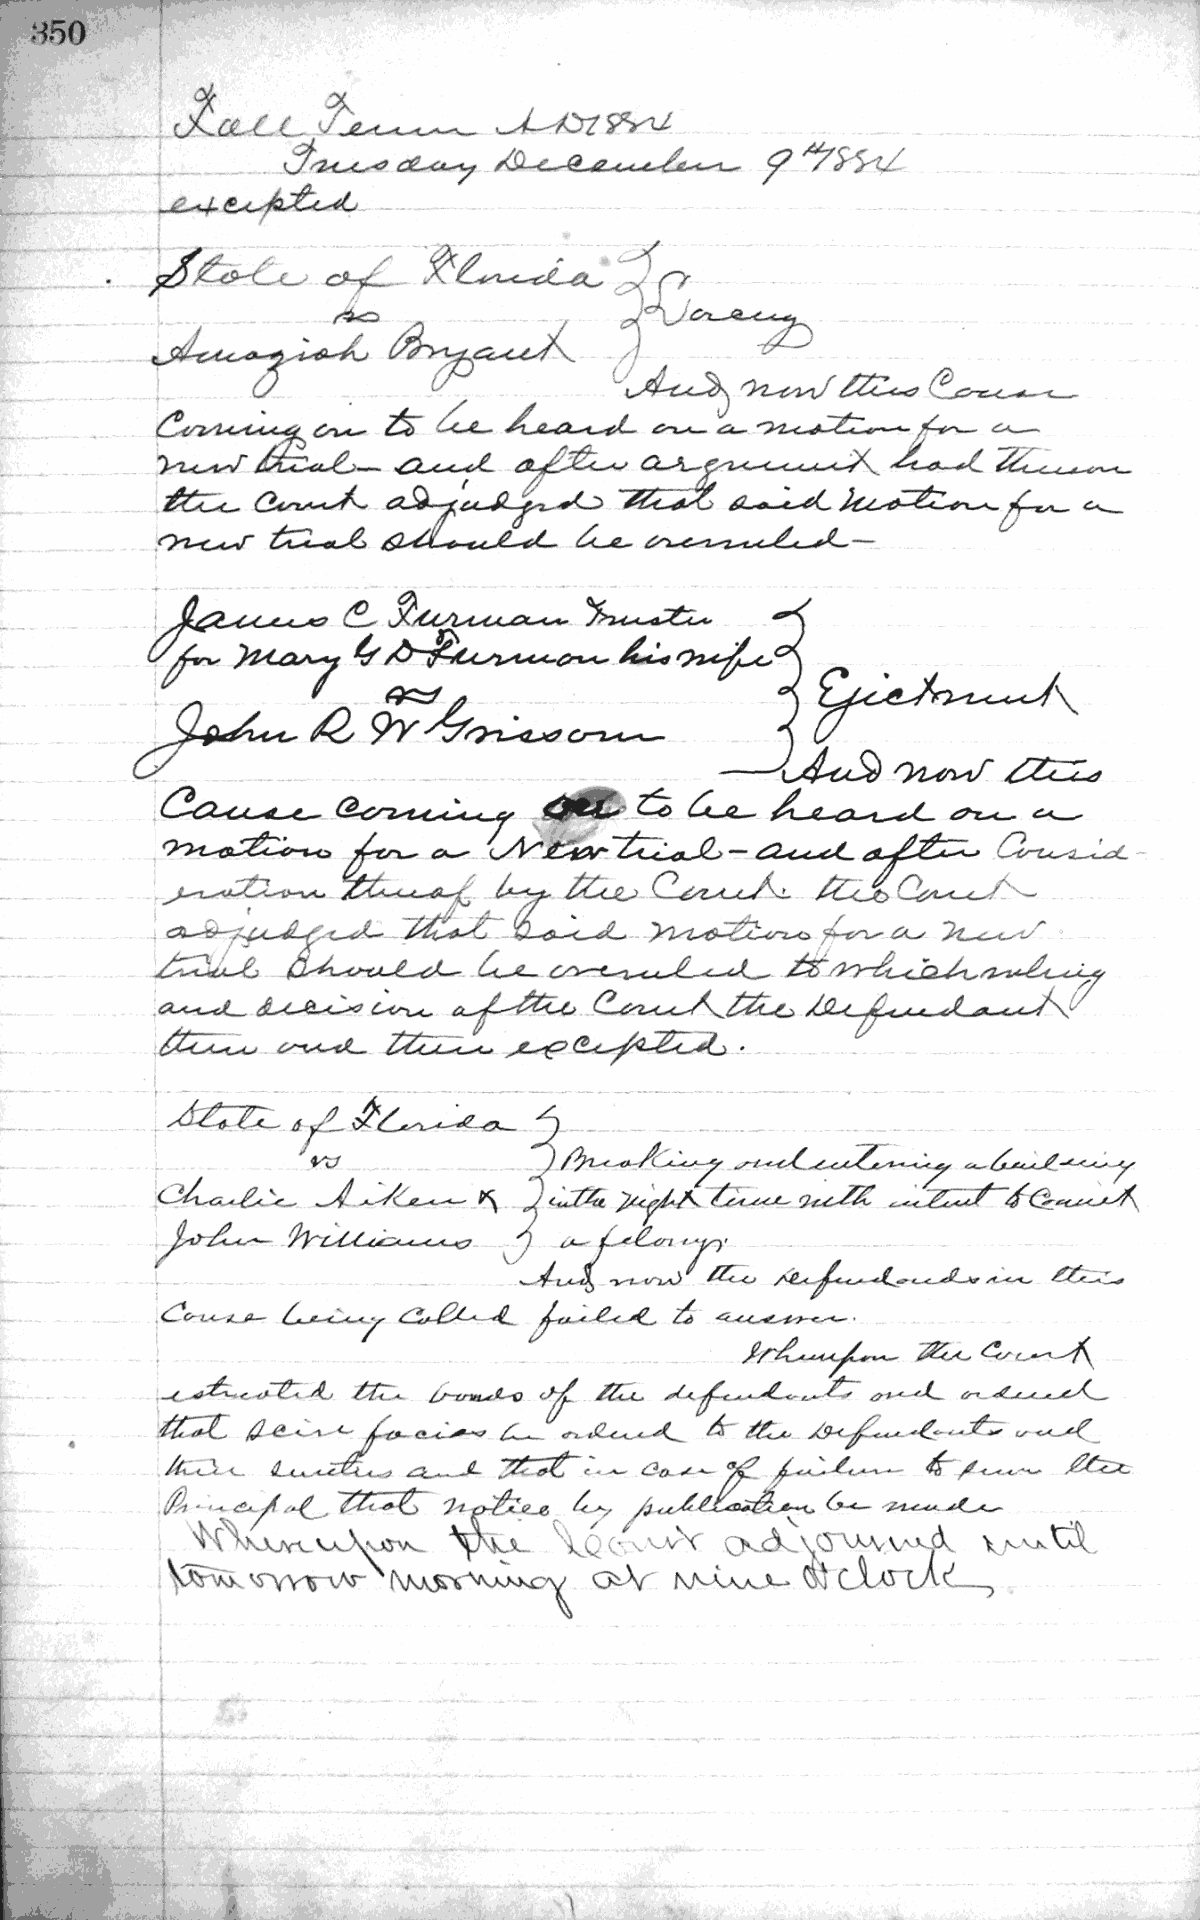 350
Fall Term A D 1884
Tuesday December 9th 1884
excepted
State of Florida
vs
Larceny
Amaziah Bryant
And now this Cause
Coming on to be heard on a motion for a
new trial - and after argument had thereon
the Court adjudged that said Motion for a
new trial should be overruled -
James C Furman Trustee
for Mary G D Furman his wife
vs
Ejectment
John R W Grissom
And now this
Cause coming on to be heard on a
motion for a New trial - and after Consid-
eration thereof by the Court. the Court
adjudged that said motion for a new
trial should be overruled to which ruling
and decision of the Court the Defendant
then and there excepted.
State of Florida
vs
Breaking and entering a building
Charlie Aiken &
in the night time with intent to Commit
John Williams
a felony.
And now the Defendants in this
Cause being called failed to answer.
Whereupon the Court
estreated the bonds of the defendants and ordered
that scire facias be ordered to the Defendants and
their sureties and that in case of failure to serve the
Principal that notice by publication be made
Whereupon the Court adjourned until
tomorrow morning at nine O'clock